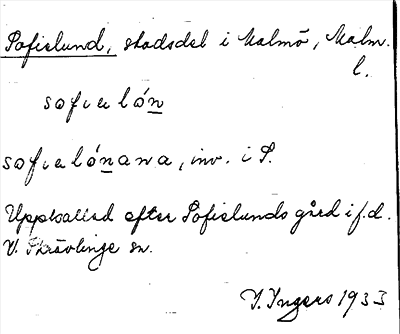 Sofielund, stadsdel i Malmö, Malm.
l.
sofıalón
sofıalónana, inv. i S.
Uppkallad efter Sofielunds gård i f.d.
V. Skrävlinge sn.
I. Ingers 1933